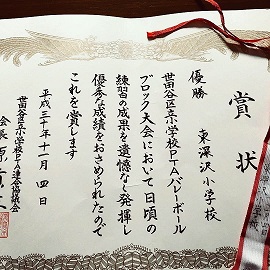 賞状
優勝
東深沢小学校
世田谷区立小学校PTAバレーボール
ブロック大会において日頃の
練習の成果を遺憾なく発揮し
優秀な成績をおさめられたので
これを賞します
平成三十年十一月四日
世田谷区立小学校PTA連合協議会
会長